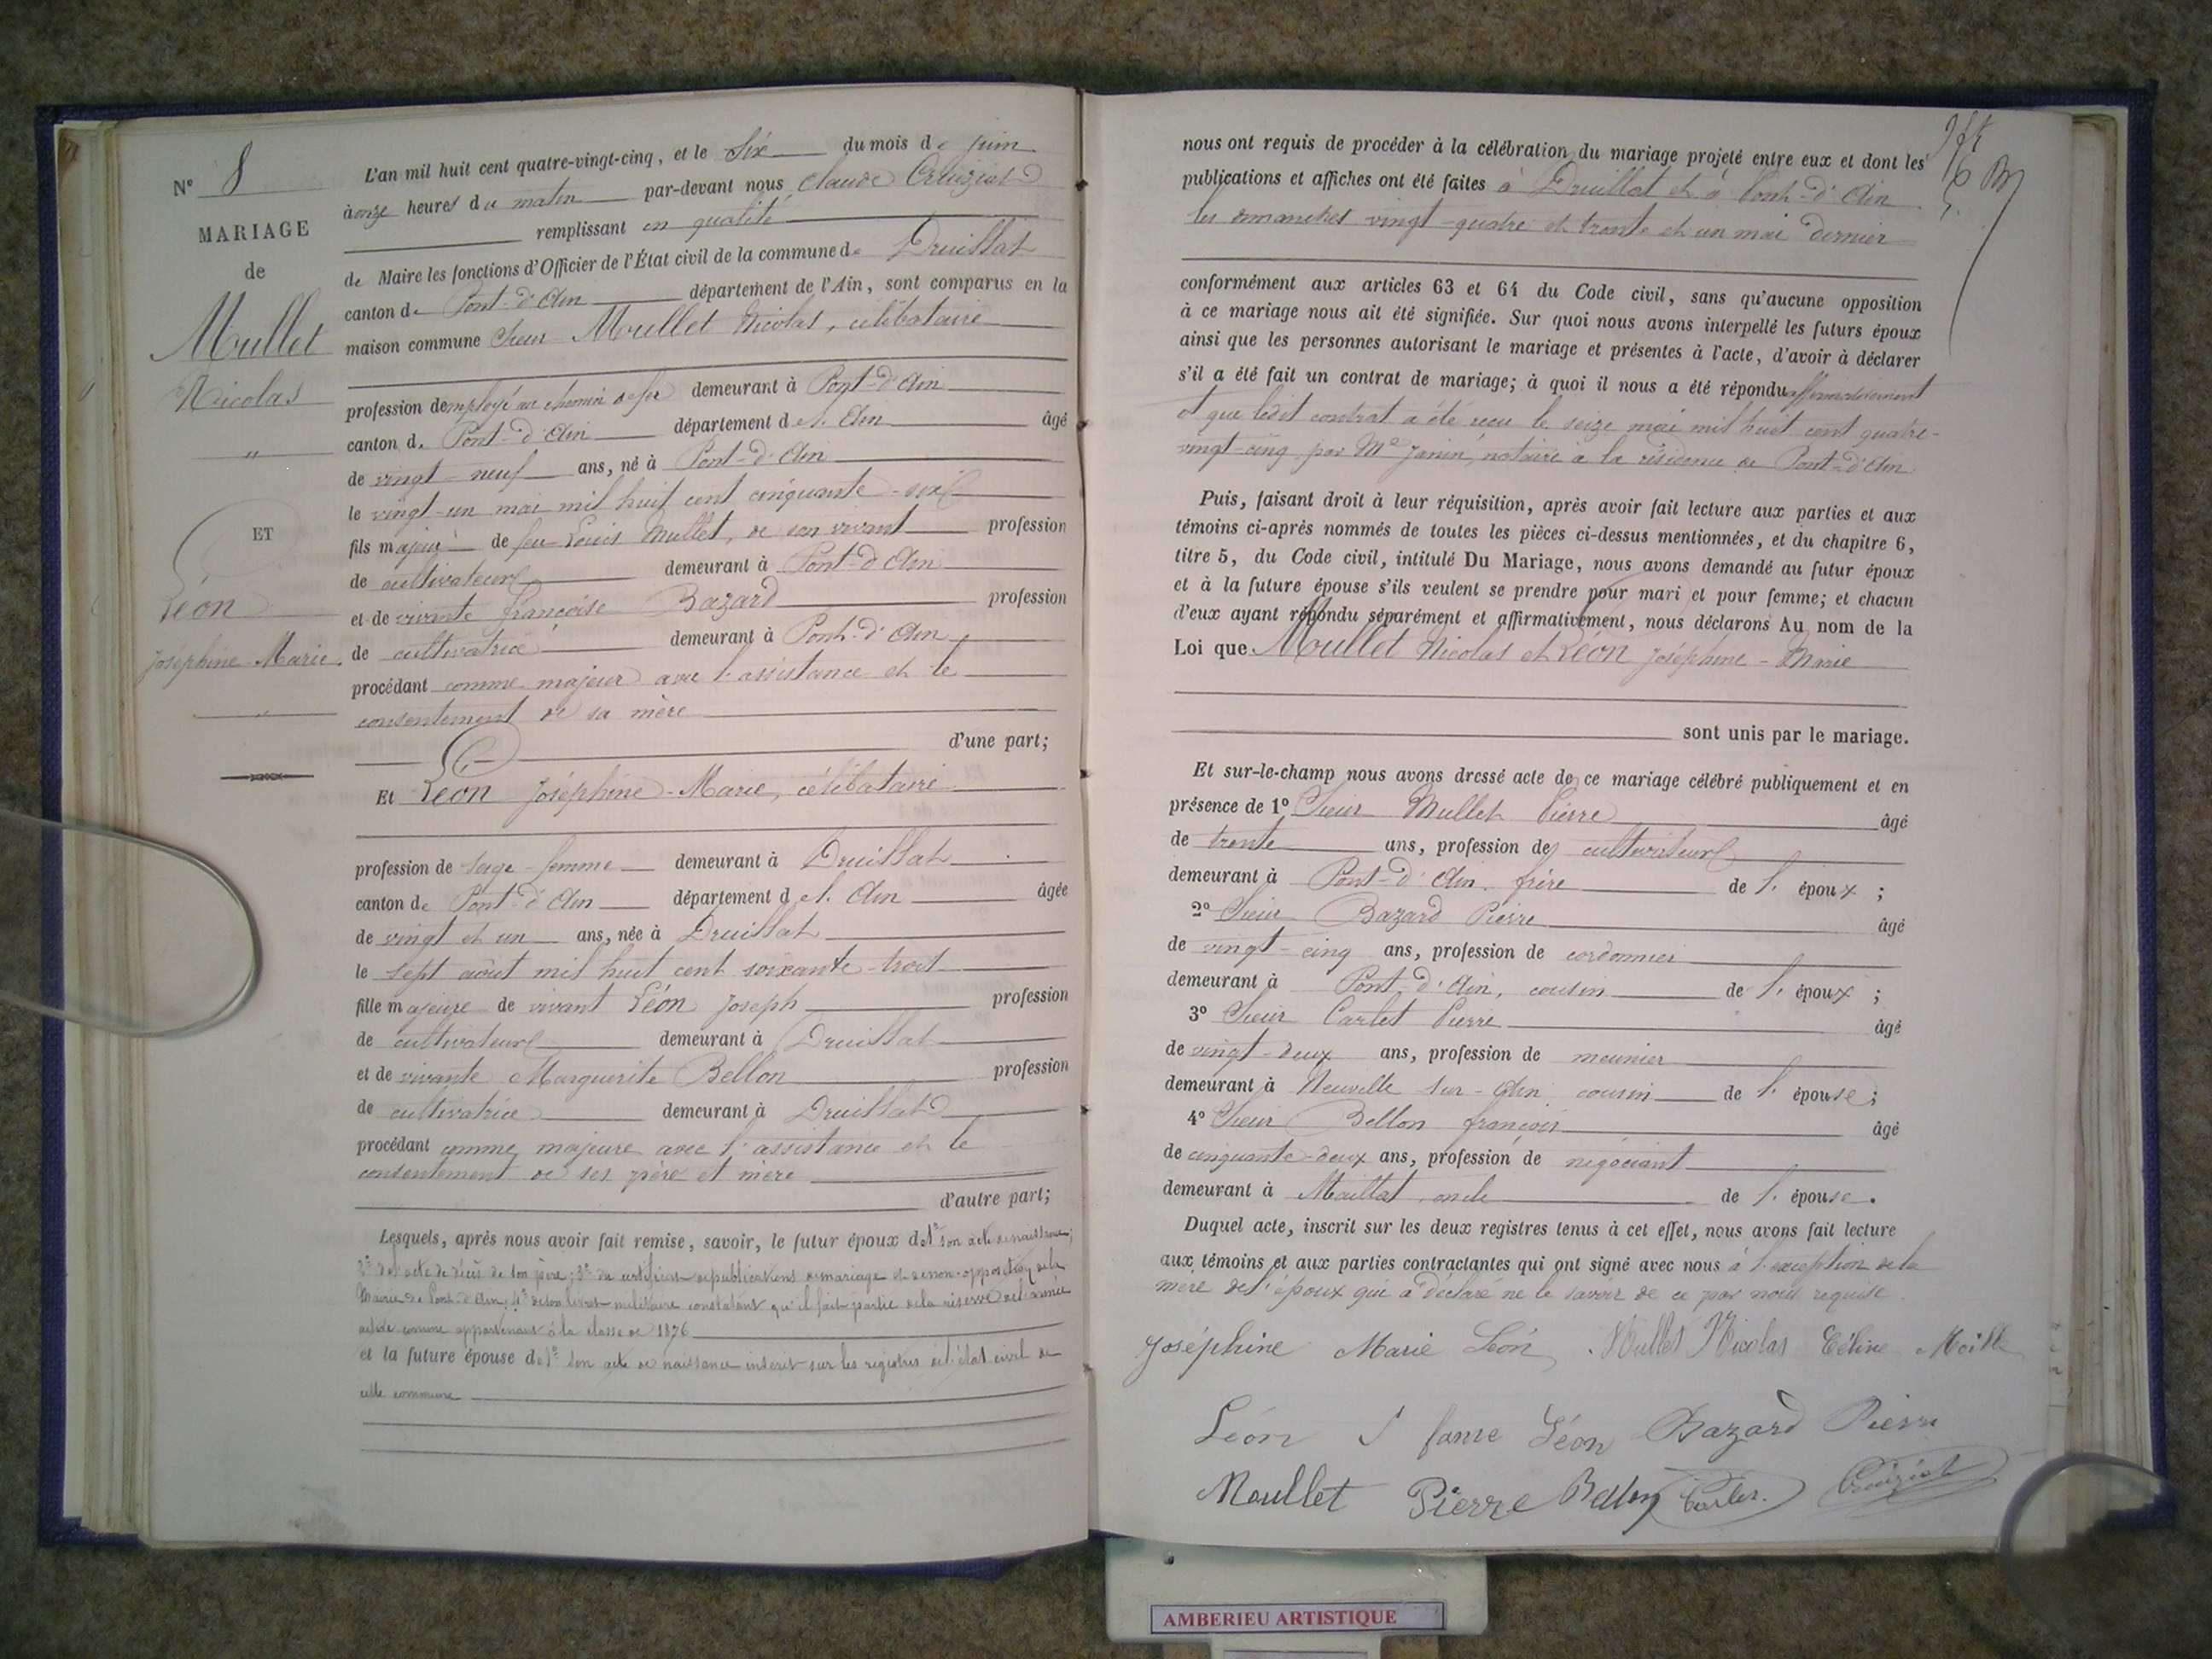 N° 8
MARIAGE
de
Mullet
Nicolas
"
ET
Léon
Joséphine-Marie.
"
L'an mil huit cent quatre-vingt-cinq, et le Six du mois de juin
à onze heures du matin par-devant nous Claude Cruiziat
remplissant en qualité
de Maire les fonctions d'Officier de l'État civil de la commune de Druillat
canton de Pont-d'Ain département de l'Ain, sont comparus en la
maison commune Sieur Mullet Nicolas, célibataire
profession d'employé au chemin de fer demeurant à Pont-d'Ain
canton de Pont-d'Ain département de l'Ain âgé
de vingt-neuf ans, né à Pont-d'Ain
le vingt-un mai mil huit cent cinquante-six
fils majeur de feu Louis Mullet, de son vivant profession
de cultivateur demeurant à Pont-d'Ain
et de vivante Françoise Bazard profession
de cultivatrice demeurant à Pont-d'Ain
procédant comme majeur avec l'assistance et le
consentement de sa mère
d'une part;
Et Léon Joséphine-Marie, célibataire
profession de sage-femme demeurant à Druillat
canton de Pont-d'Ain département de l'Ain âgée
de vingt et un ans, née à Druillat
le sept août mil huit cent soixante-trois
fille majeure de vivant Léon Joseph profession
de cultivateur demeurant à Druillat
et de vivante Marguerite Bellon profession
de cultivatrice demeurant à Druillat
procédant comme majeure avec l'assistance et le
consentement de ses père et mère
d'autre part;
Lesquels, après nous avoir fait remise, savoir, le futur époux de 1° son acte de naissance;
2° de l'acte de décès de son père; 3° du certificat de publications de mariage et de non-opposition de la
Mairie de Pont-d'Ain; 4° de son livret militaire constatant qu'il fait partie de la réserve de l'armée
active comme appartenant à la classe de 1876
et la future épouse de 1° son acte de naissance inscrit sur les registres de l'état civil de
cette commune
nous ont requis de procéder à la célébration du mariage projeté entre eux et dont les
publications et affiches ont été faites à Druillat et à Pont-d'Ain
les dimanches vingt-quatre et trente et un mai dernier
conformément aux articles 63 et 64 du Code civil, sans qu'aucune opposition
à ce mariage nous ait été signifiée. Sur quoi nous avons interpellé les futurs époux
ainsi que les personnes autorisant le mariage et présentes à l'acte, d'avoir à déclarer
s'il a été fait un contrat de mariage; à quoi il nous a été répondu affirmativement
et que ledit contrat a été reçu le seize mai mil huit cent quatre-
vingt-cinq par Me Janin, notaire à la résidence de Pont-d'Ain
Puis, faisant droit à leur réquisition, après avoir fait lecture aux parties et aux
témoins ci-après nommés de toutes les pièces ci-dessus mentionnées, et du chapitre 6,
titre 5, du Code civil, intitulé Du Mariage, nous avons demandé au futur époux
et à la future épouse s'ils veulent se prendre pour mari et pour femme; et chacun
d'eux ayant répondu séparément et affirmativement, nous déclarons Au nom de la
Loi que Mullet Nicolas et Léon Joséphine-Marie
sont unis par le mariage.
Et sur-le-champ nous avons dressé acte de ce mariage célébré publiquement et en
présence de 1° Sieur Mullet Pierre âgé
de trente ans, profession de cultivateur
demeurant à Pont-d'Ain, frère de l'époux;
2° Sieur Bazard Pierre âgé
de vingt-cinq ans, profession de cordonnier
demeurant à Pont-d'Ain, cousin de l'époux;
3° Sieur Carlet Pierre âgé
de vingt-deux ans, profession de meunier
demeurant à Neuville sur-Ain cousin de l'épouse;
4° Sieur Bellon françois âgé
de cinquante-deux ans, profession de négociant
demeurant à Maillat, oncle de l'épouse.
Duquel acte, inscrit sur les deux registres tenus à cet effet, nous avons fait lecture
aux témoins et aux parties contractantes qui ont signé avec nous à l'exception de la
mère de l'époux qui a déclaré ne le savoir de ce par nous requise.
Joséphine Marie Léon Mullet Nicolas Céline
Léon J fame Léon Bazard Pierre
Moullet Pierre Bellon Carlet Cruiziat
AMBERIEU ARTISTIQUE